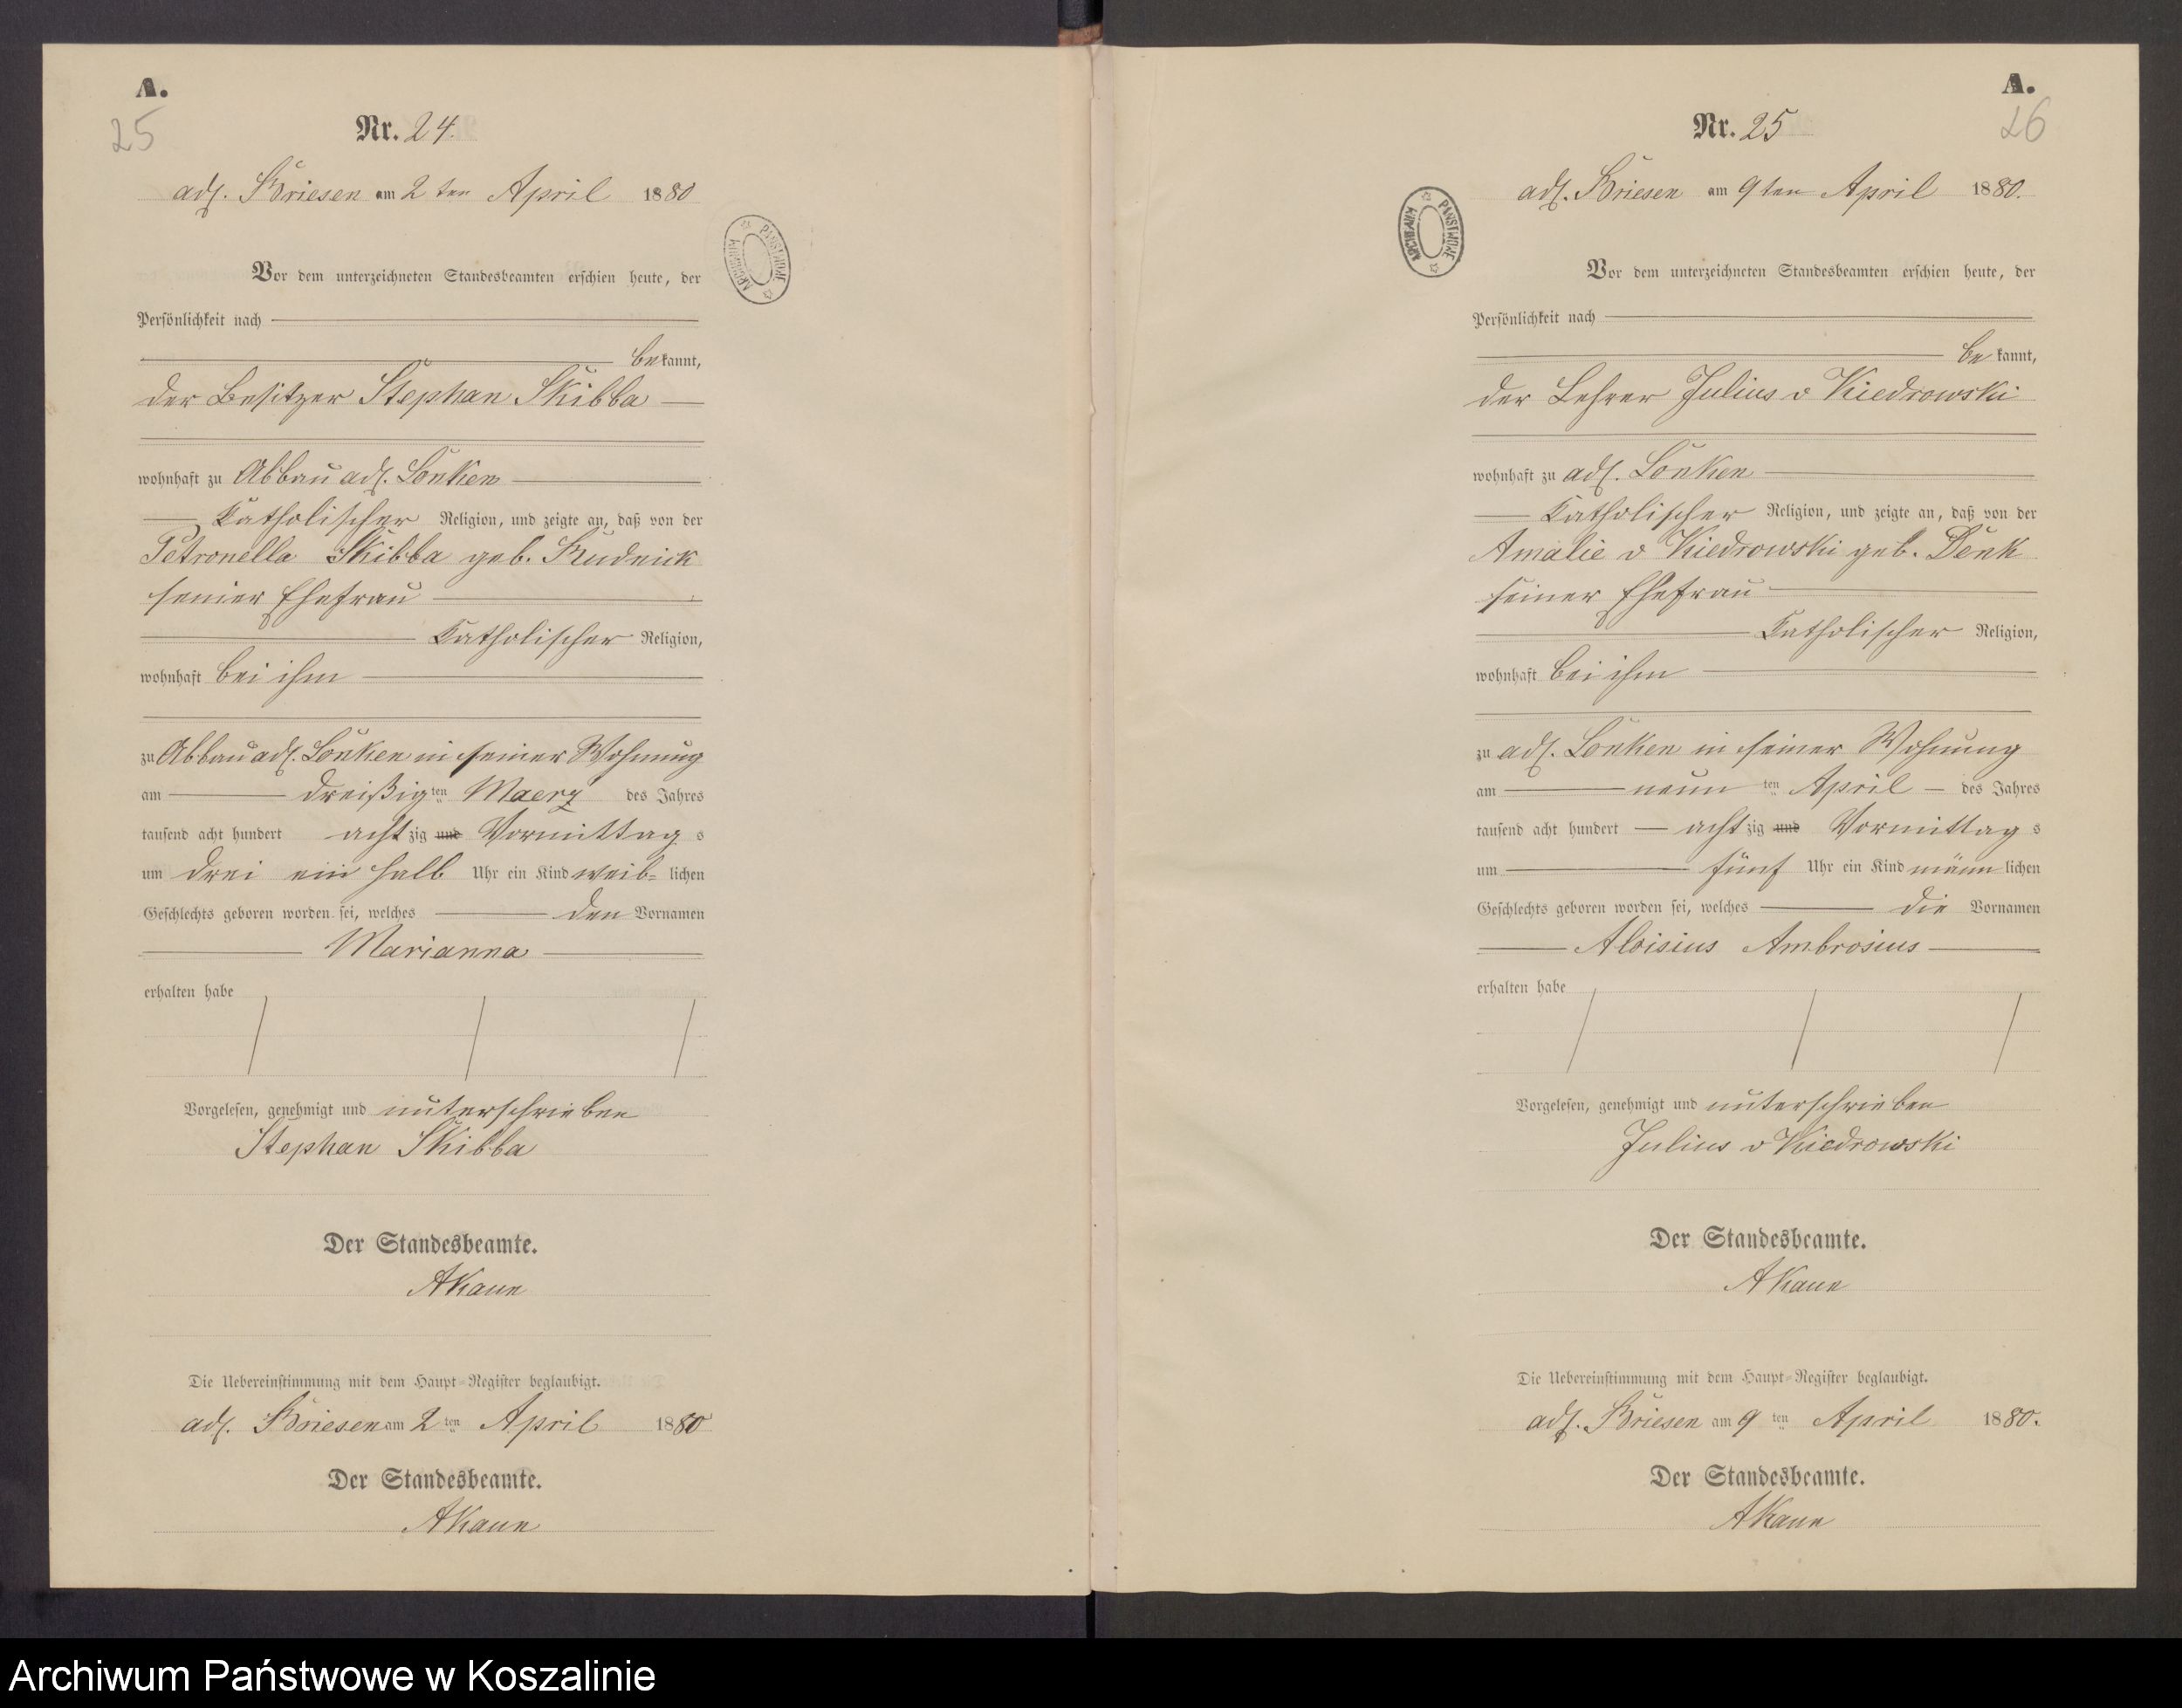 A.
25
Nr. 24.
adl. Briesen am 2 ten April 1880
ARCHIWUM PAŃSTWOWE
Vor dem unterzeichneten Standesbeamten erschien heute, der
Persönlichkeit nach
bekannt,
der Besitzer Stephan Skibba
wohnhaft zu Abbau adl. Lonken
katholischer Religion, und zeigte an, daß von der
Petronella Skibba geb. Rudnick
seiner Ehefrau
katholischer Religion,
wohnhaft bei ihm
zu Abbau adl. Lonken in seiner Wohnung
am dreißig ten Maerz des Jahres
tausend acht hundert achtzig und Vormittags
um drei ein halb Uhr ein Kind weib= lichen
Geschlechts geboren worden sei, welches den Vornamen
Marianna
erhalten habe
Vorgelesen, genehmigt und unterschrieben
Stephan Skibba
Der Standesbeamte.
AKaun
Die Uebereinstimmung mit dem Haupt-Register beglaubigt.
adl. Briesen am 2 ten April 1880
Der Standesbeamte.
AKaun
A.
26
Nr. 25
adl. Briesen am 9ten April 1880.
ARCHIWUM PAŃSTWOWE
Vor dem unterzeichneten Standesbeamten erschien heute, der
Persönlichkeit nach
bekannt,
der Lehrer Julius v Kiedrowski
wohnhaft zu adl. Lonken
katholischer Religion, und zeigte an, daß von der
Amalie v Kiedrowski geb. Denk
seiner Ehefrau
katholischer Religion,
wohnhaft bei ihm
zu adl. Lonken in seiner Wohnung
am neun ten April des Jahres
tausend acht hundert achtzig und Vormittags
um fünf Uhr ein Kind männlichen
Geschlechts geboren worden sei, welches die Vornamen
Aloisius Ambrosius
erhalten habe
Vorgelesen, genehmigt und unterschrieben
Julius v Kiedrowski
Der Standesbeamte.
AKaun
Die Uebereinstimmung mit dem Haupt-Register beglaubigt.
adl. Briesen am 9 ten April 1880.
Der Standesbeamte.
AKaun
Archiwum Państwowe w Koszalinie